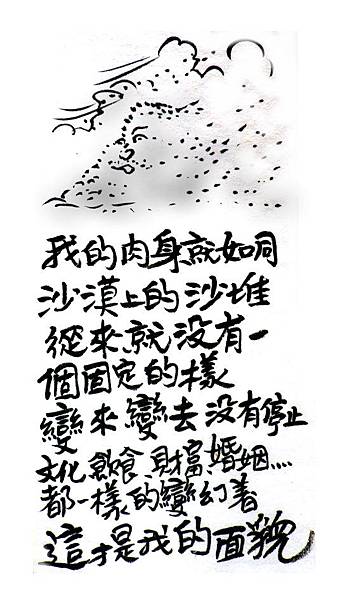 我的肉身就如同
沙漠上的沙堆
從來就没有一
個固定的樣
變來變去没有停止
文化飲食財富婚姻....
都一樣的變幻着
這才是我的面貌